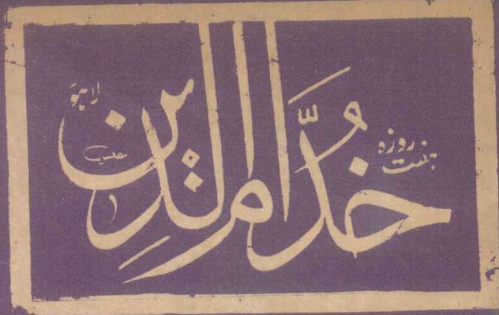 ہفت روزہ
خُدّام الدین
لاہور